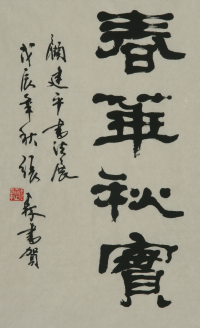 春華秋實
建平書法展
戊辰年秋張
森書賀